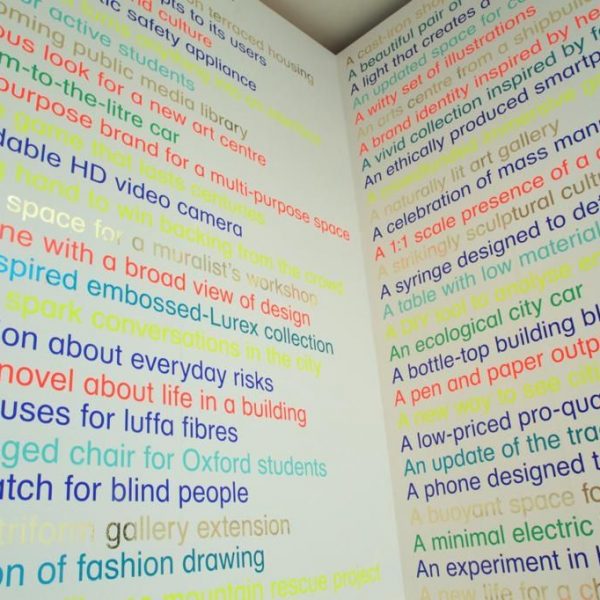 terraced housing
pts to its users
nd culture
tic safety appliance
or active students
oming public media library
ous look for a new art centre
m-to-the-litre car
purpose brand for a multi-purpose space
game that lasts centuries
dable HD video camera
hand to win backing from the crowd
space for a muralist's workshop
ne with a broad view of design
spired embossed-Lurex collection
spark conversations in the city
on about everyday risks
novel about life in a building
uses for luffa fibres
ged chair for Oxford students
atch for blind people
triform gallery extension
on of fashion drawing
mountain rescue project
A cast-iron shop
A beautiful pair of
A light that creates a
An updated space for co
A witty set of illustrations
An arts centre from a shipbuildi
A brand identity inspired by he
A vivid collection inspired by f
An ethically produced smartp
A naturally lit art gallery
A celebration of mass man
A 1:1 scale presence of a c
A strikingly sculptural cultu
A syringe designed to de
A table with low material
A DIY tool to analyse
An ecological city car
A bottle-top building bl
A pen and paper outp
A new way to see citi
A low-priced pro-qua
An update of the tra
A phone designed t
A buoyant space fo
A minimal electric
An experiment in
A new life for a ch